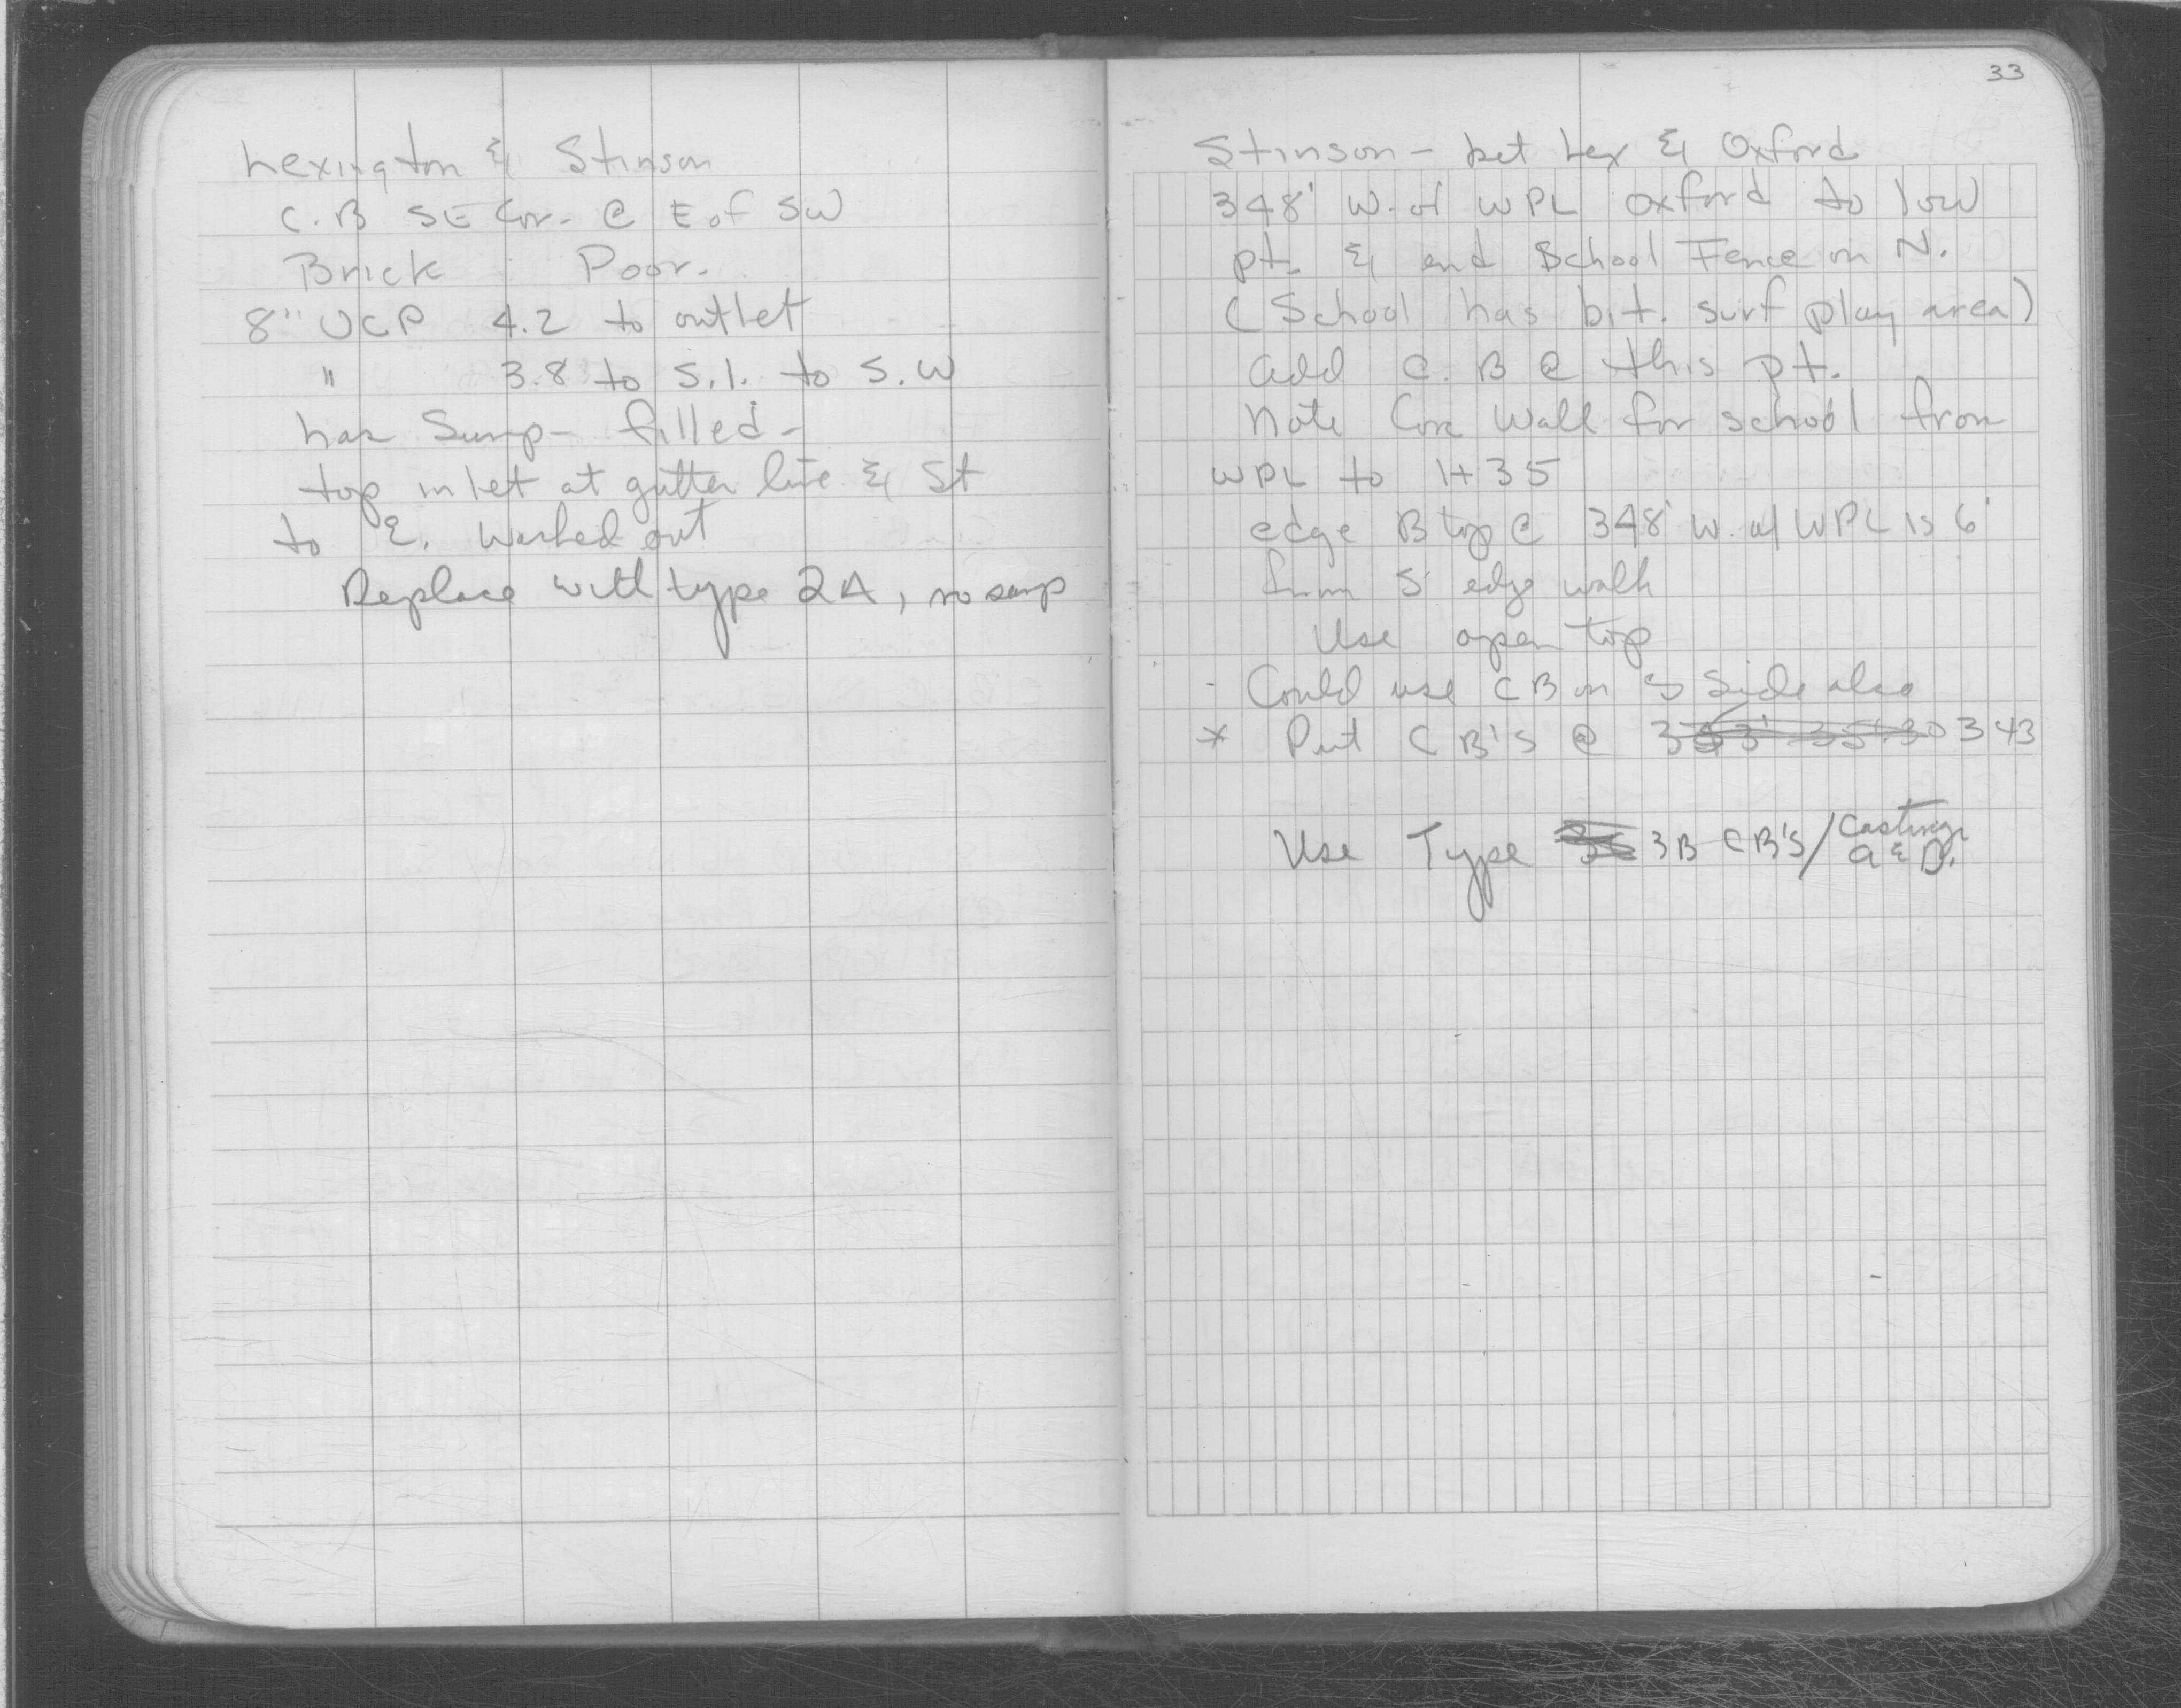 Lexington & Stinson
C.B SE Cor. @ E of SW
Brick Poor.
8" VCP 4.2 to outlet
" 3.8 to S.I. to S.W
has Sump - filled -
top inlet at gutter line & St
to E. Washed out
Replace with type 2A, no sump
33
Stinson - bet Lex & Oxford
348' W. of WPL Oxford to low
pt. & end School Fence on N.
(School has bit. surf play area)
add C.B @ this pt.
Note Conc Wall for school from
WPL to 1+35
edge B top @ 348' W. of WPL is 6'
from S edge walk
Use open top
- Could use CB on S Side also
* Put CB's @ 343
Use Type 3B CB's / Casting
a & D.